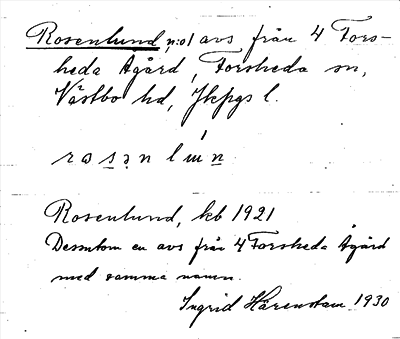 Rosenlund, n:o1 avs från 4 Fors-
heda Ågård, Forsheda sn,
Västbo hd, Jkpgs l.
rosənlɯn
Rosenlund, kb 1921
Dessutom en avs från 4 Forsheda Ågård
med samma namn.
Ingrid Härenstam 1930